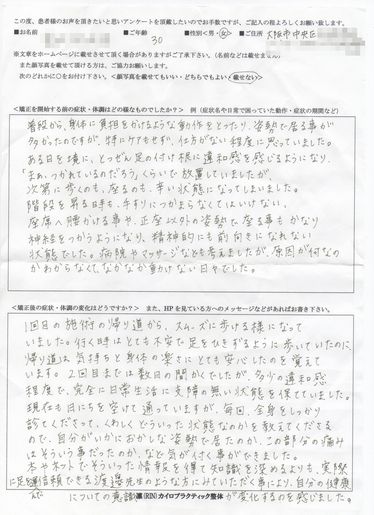 この度、患者様のお声を頂きたいと思いアンケートを頂戴したいのでお手数ですが、ご記入の程よろしくお願い致します。
■お名前
■ご年齢 30
■性別<男・女>
■ご住所 大阪市中央区
※文章をホームページに載せさせて頂く場合がありますがご了承下さい。(名前などは載せません)
また顔写真を載せて頂ける方は、ご協力お願いします。
次のどれかに○をお付け下さい。<顔写真を載せてもいい・どちらでもよい・載せない>
<矯正を開始する前の症状・体調はどの様なものでしたか?> 例(症状名や日常で困っていた動作・症状の期間など)
普段から、身体に負担をかけるような動作をとったり、姿勢で居る事が
多かったのですが、特にケアもせず、仕方がない程度に思っていました。
ある日を境に、とつぜん足の付け根に違和感を感じるようになり、
「まあ、つかれているのだろう」くらいで放置していましたが、
次第に歩くのも、座るのも、辛い状態になってしまいました。
階段を昇る時も、手すりにつかまらなくてはいけない、
座席へ腰かける事や、正座以外の姿勢で座る事もかなり
神経をつかうようになり、精神的にも前向きになれない
状態でした。病院やマッサージなども考えましたが、原因が何なの
かわからなくて、なかなか動けない日々でした。
<矯正後の症状・体調の変化はどうですか?> また、HPを見ている方へのメッセージなどがあればお書き下さい。
1回目の施術の帰り道から、スムーズに歩ける様になって
いました。行く時はとても不安で足をひきずるように歩いていたのに、
帰り道は気持ちと身体の楽さにとても安心したのを覚えて
います。2回目までは数日の間かくでしたが、多少の違和感
程度で、完全に日常生活に支障の無い状態を保てていました。
現在も日にちを空けて通っていますが、毎回、全身をしっかり
診てくださって、くわしくどういった状態なのかを教えてくださる
ので、自分がいかにおかしな姿勢で居たのか、この部分の痛み
はそういう事だったのか、など気が付く事ができました。
本やネットでそういった情報を得て知識を深めるよりも、実際
に足を運び信頼できる渡邊先生のような方にみていただく事により、自分の健康
についての意識が変化するのを感じました。
凛(RIN)カイロプラクティック整体